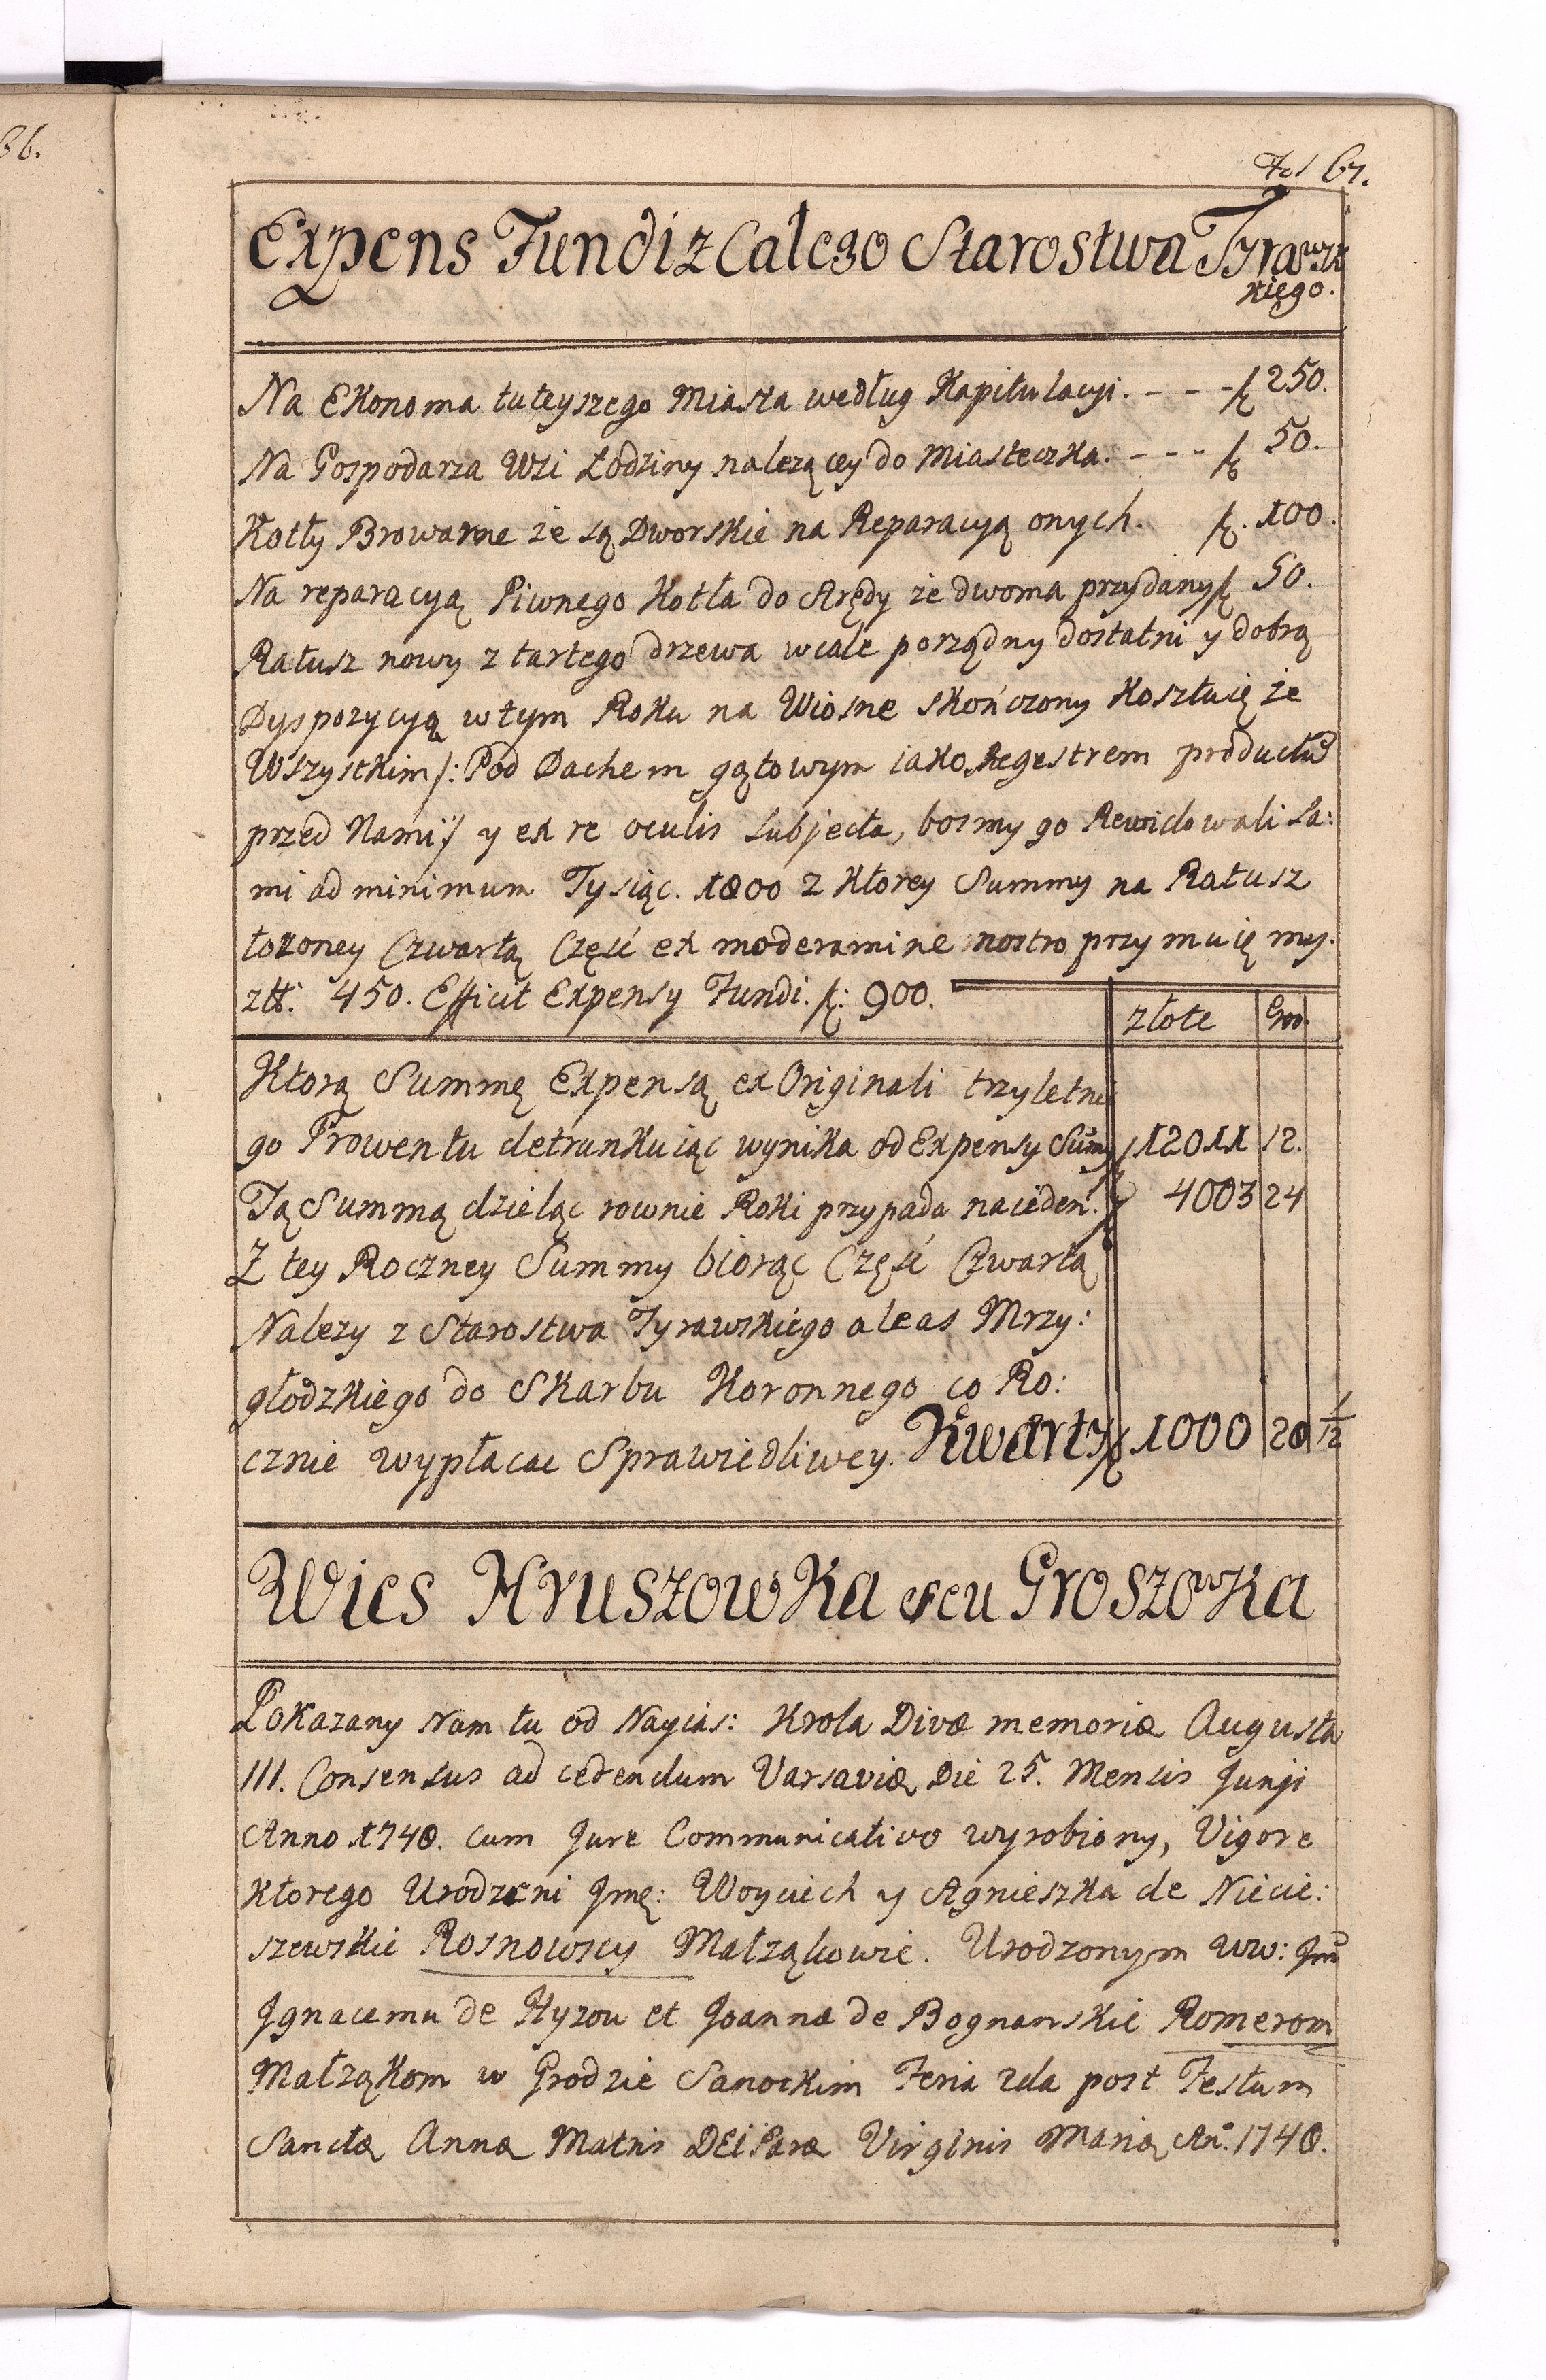 36.
Fol 67.
Expens Fundi z Całego Starostwa Tyraws
kięgo.
Na Ekonoma tuteyszego Miasta według Kapitulacyi. - - - f 250.
Na Gospodarza Wsi Łodziny nalezącey do Miasteczka. - - - f 50.
Kotły Browarne że są Dworskie na Reparacyą onych. f. 100.
Na reparacyą Piwnego Kotła do Arędy że dwoma przydany f 50.
Ratusz nowy z tartego drzewa wcale porządny dostatni y dobrą
Dyspozycyą w tym Roku na Wiosne skończony Kosztuię że
Wszystkim /: Pod Dachem gątowym iako Regestrem productũ
przed Nami :/ y ex re oculis subjecta, bosmy go Rewidowali sa:
mi ad minimum Tysiąc. 1800 z Ktorey Summy na Ratusz
łożoney Czwartą Część ex moderamine nostro przymuię my.
złł: 450. Efficit Expensy Fundi. f: 900.
złote Gro.
Ktorą Summę Expensą ex Originali trzyletnie
go Prowentu detrunkuiąc wynika od Expensy Sum̃y f 12011 12.
Tą Summą dzieląc rownie Roki przypada na ieden. f 4003 24
Z tey Roczney Summy biorąc Część Czwartą
Nalezy z Starostwa Tyrawskiego aleas Mrzy:
głodzkiego do Skarbu Koronnego co Ro:
cznie wypłacac Sprawiedliwey. Kwarty f 1000 28 1/2
Wies Hruszowka seu Groszowka
Pokazany Nam tu od Nayias: Krola Divæ memoriæ Augusta
III. Consensus ad cedendum Varsaviæ Die 25. Mensis Junji
Anno 1748. cum Jure Communicativo wyrobiony, Vigore
ktorego Urodzeni Jmę: Woyciech y Agnieszka de Niecie:
szewskie Rosnowscy Małząkowie. Urodzonym ww: Jm̃
Jgnacemu de Hyzou et Joannæ de Bognanskie Romerom
Małząkom w Grodzie Sanockim Feria 2da post Festum
Sanctæ Annæ Matris DEiParæ Virginis Mariæ An̊. 1748.